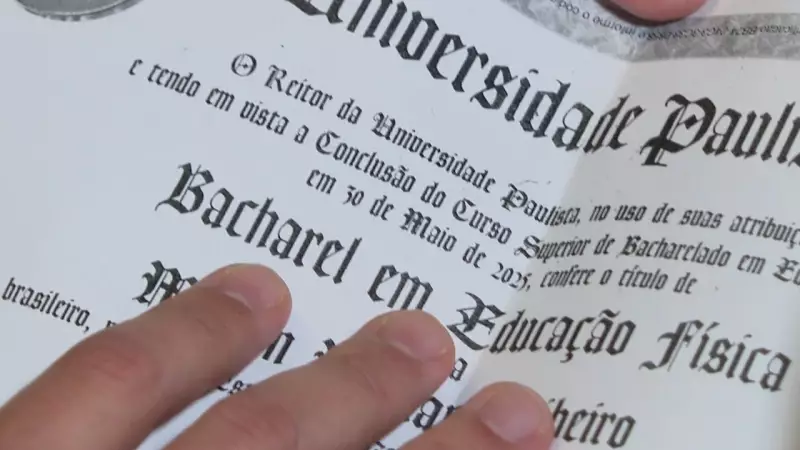 Universidade Paulis
O Reitor da Universidade Paulista, no uso de suas atribuiç
e tendo em vista a Conclusão do Curso Superior de Bacharelado em Ed
em 30 de Maio de 2025, confere o título de
Bacharel em Educação Física
brasileiro,